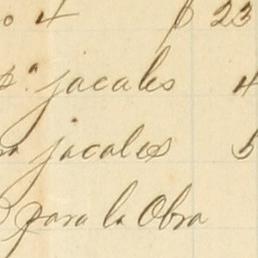 o 4 $ 23
pª jacales 4
ra jacales 5
para la Obra